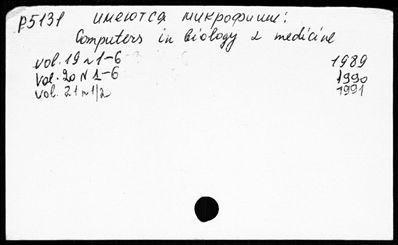 P5131 имеются микрофиши:
Computers in biology & medicine
vol. 19 N 1-6 1989
vol. 20 N 1-6 1990
vol. 21 N 1/2 1991